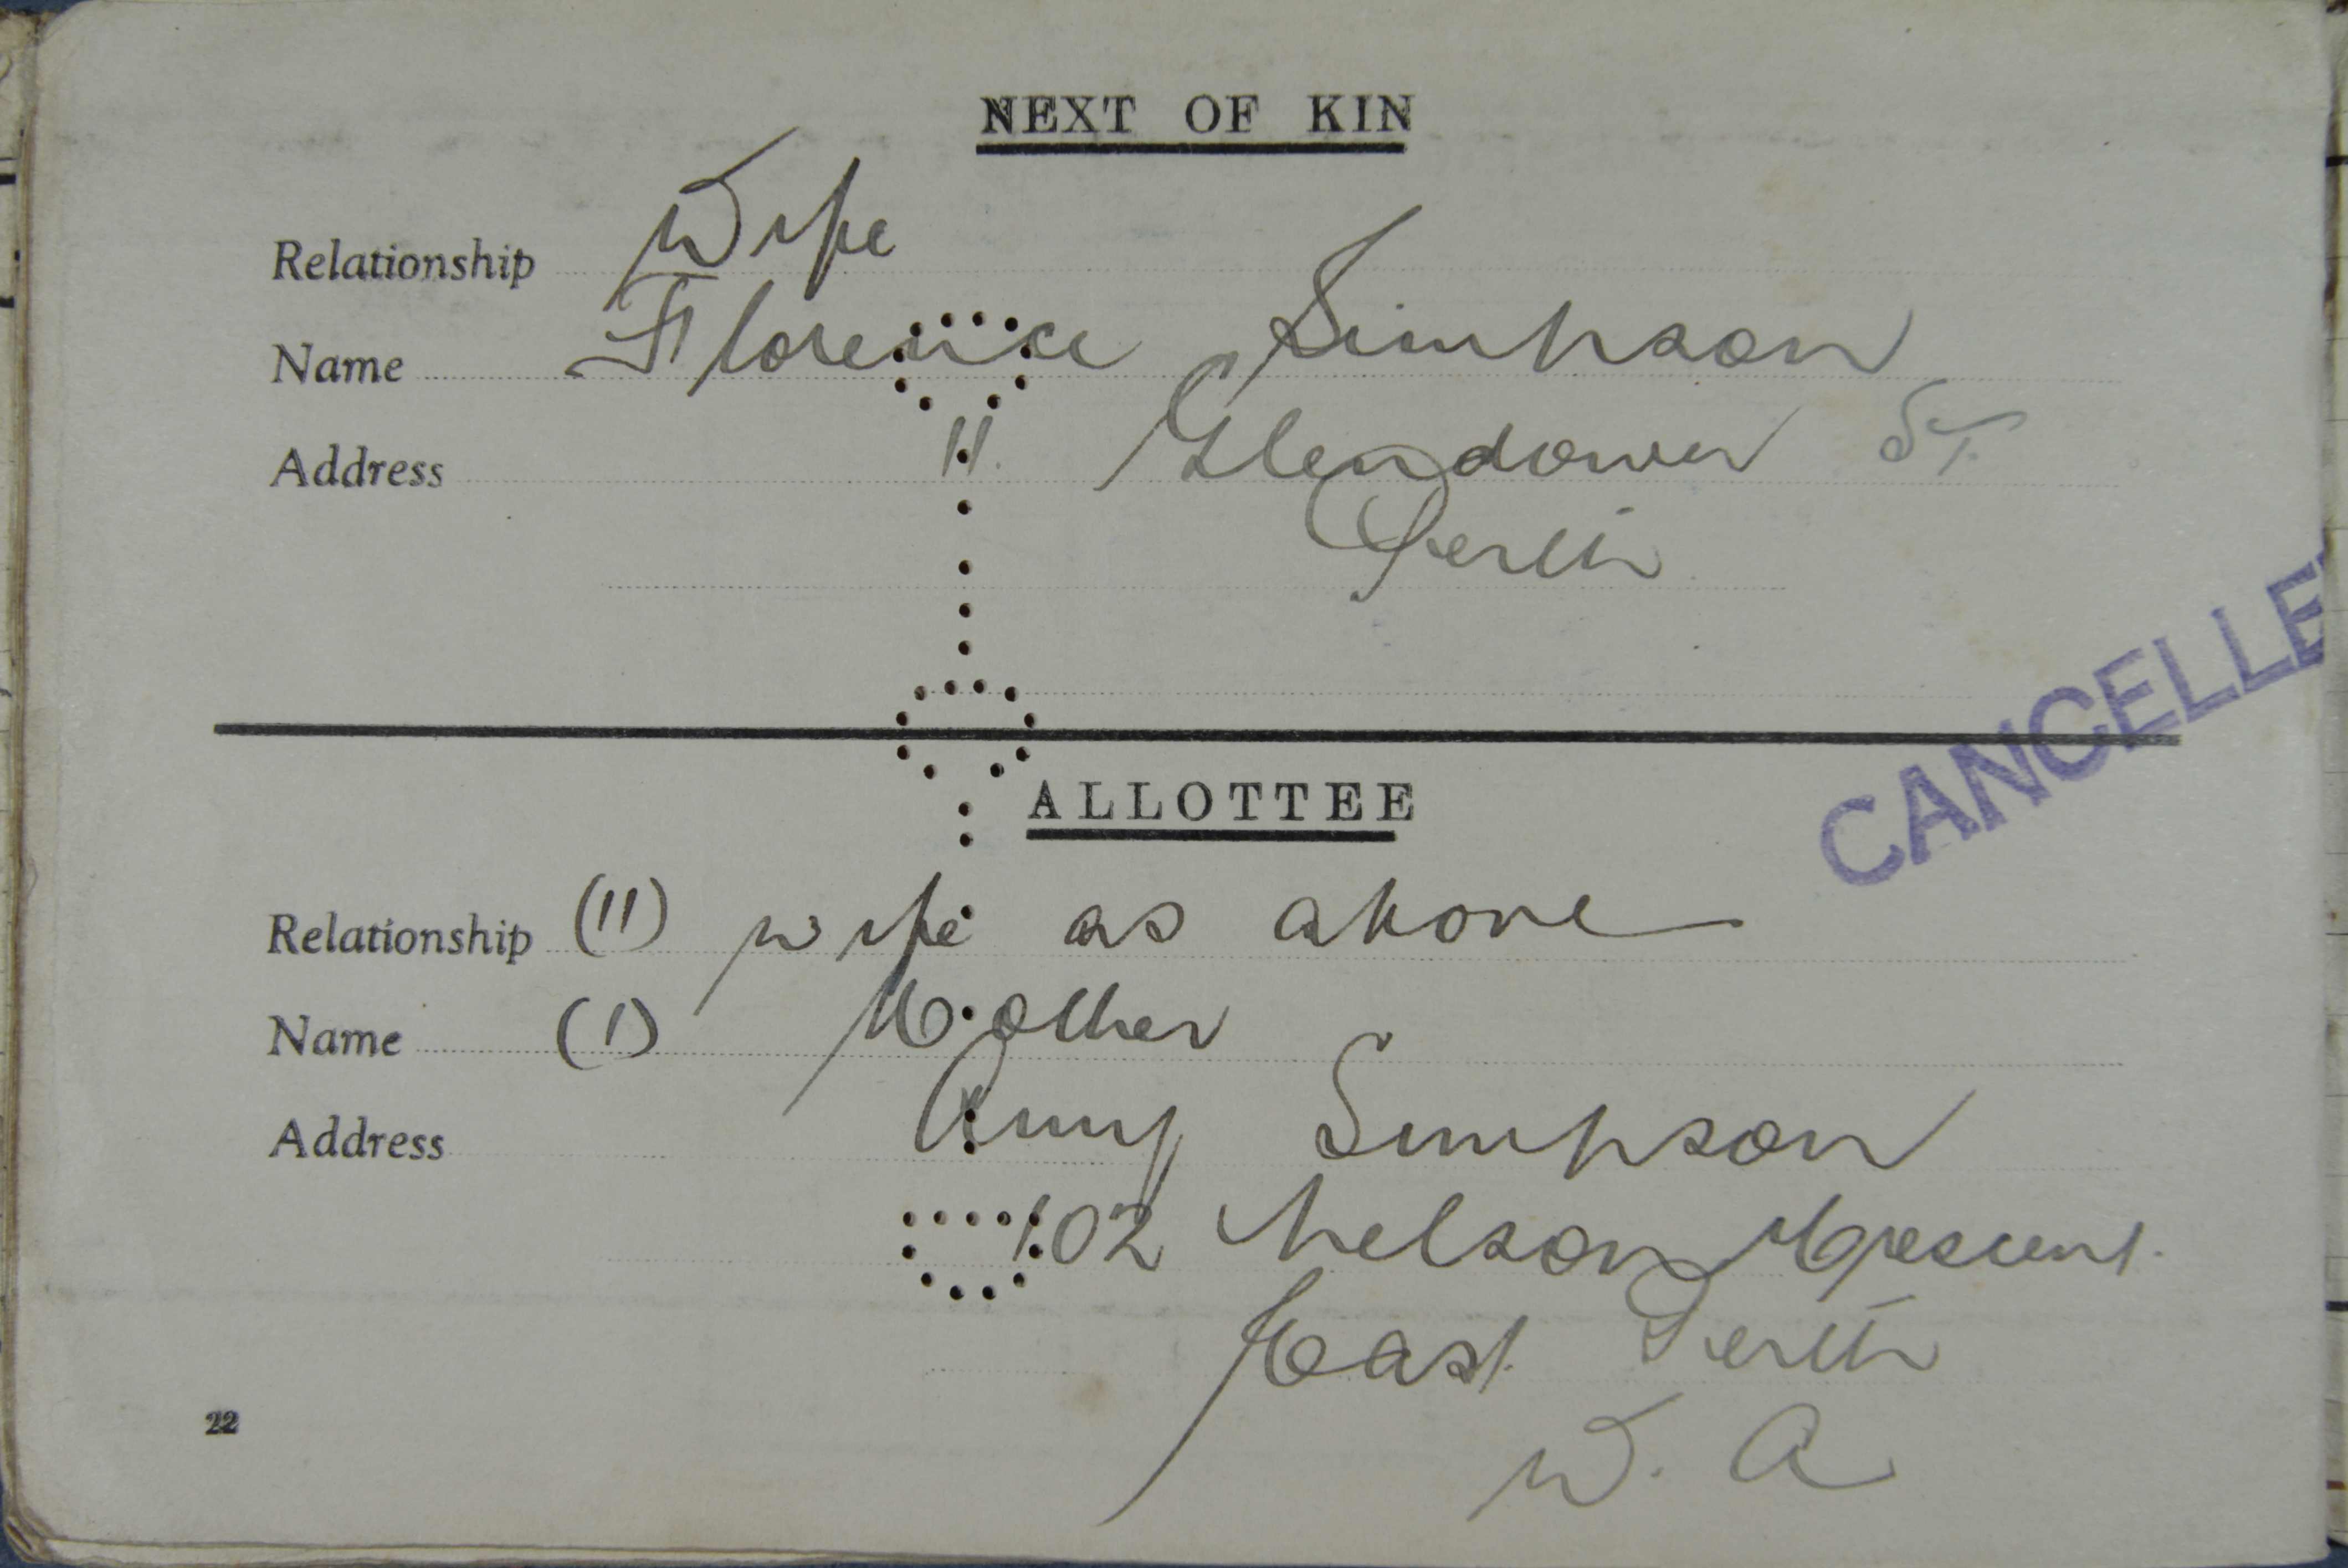 NEXT OF KIN
Relationship Wife
Name Florence Simpson
Address 11. Glendower St.
Perth
CANCELLE
ALLOTTEE
Relationship (11) wife as above
Name (1) Mother
Address Amy Simpson
102 Nelson Crescent.
East Perth
W. A
22